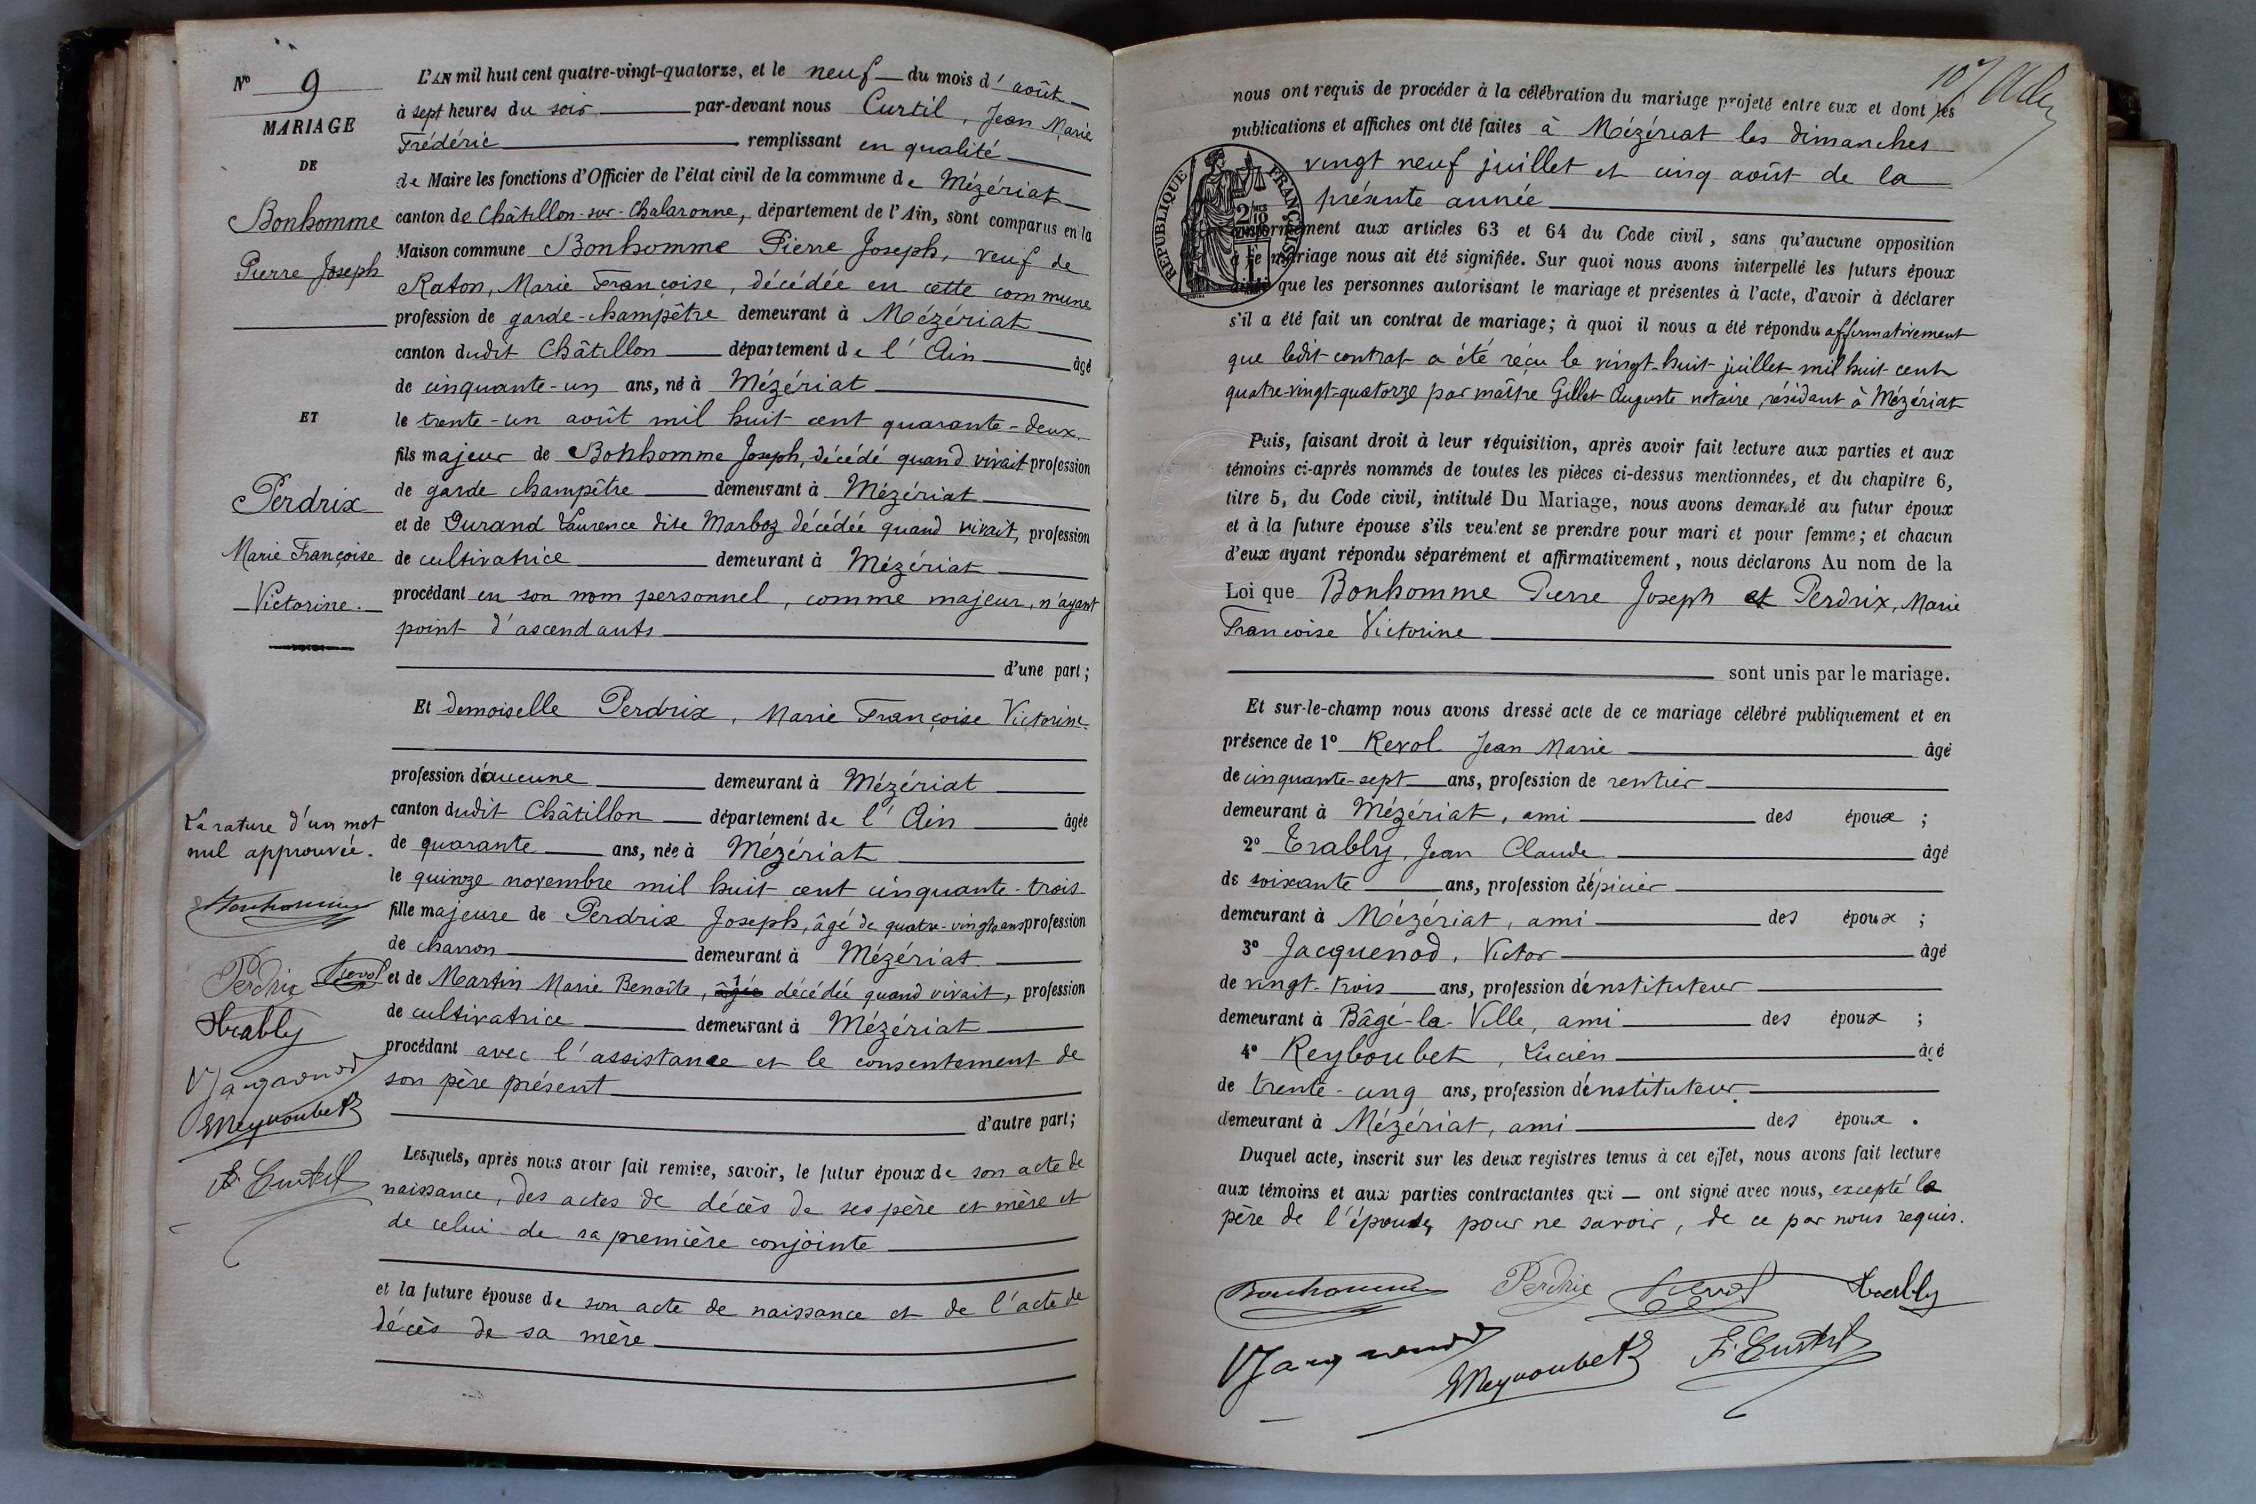 N° 9
MARIAGE
DE
Bonhomme
Pierre Joseph
ET
Perdrix
Marie Françoise
Victorine.
La rature d'un mot
nul approuvée.
Bonhomme
Perdrix Revol
Trably
VJacquenod
Reyboubet
F. Curtil
L'AN mil huit cent quatre-vingt-quatorze, et le neuf du mois d'août
à sept heures du soir par-devant nous Curtil, Jean Marie
Frédéric remplissant en qualité
de Maire les fonctions d'Officier de l'état civil de la commune de Mézériat
canton de Châtillon-sur-Chalaronne, département de l'Ain, sont comparus en la
Maison commune Bonhomme Pierre Joseph, veuf de
Raton, Marie Françoise, décédée en cette commune
profession de garde-champêtre demeurant à Mézériat
canton dudit Châtillon département de l'Ain âgé
de cinquante-un ans, né à Mézériat
le trente-un août mil huit cent quarante-deux
fils majeur de Bonhomme Joseph, décédé quand vivait profession
de garde champêtre demeurant à Mézériat
et de Durand Laurence dite Marboz décédée quand vivait, profession
de cultivatrice demeurant à Mézériat
procédant en son nom personnel, comme majeur, n'ayant
point d'ascendants
d'une part;
Et demoiselle Perdrix, Marie Françoise Victorine
profession d'aucune demeurant à Mézériat
canton dudit Châtillon département de l'Ain âgée
de quarante ans, née à Mézériat
le quinze novembre mil huit cent cinquante-trois
fille majeure de Perdrix Joseph, âgé de quatre-vingts ans profession
de charron demeurant à Mézériat
et de Martin Marie Benoîte, âgée décédée quand vivait, profession
de cultivatrice demeurant à Mézériat
procédant avec l'assistance et le consentement de
son père présent
d'autre part;
Lesquels, après nous avoir fait remise, savoir, le futur époux de son acte de
naissance, des actes de décès de ses père et mère et
de celui de sa première conjointe
et la future épouse de son acte de naissance et de l'acte de
décès de sa mère
10
nous ont requis de procéder à la célébration du mariage projeté entre eux et dont les
publications et affiches ont été faites à Mézériat les dimanches
vingt neuf juillet et cinq août de la
présente année
RÉPUBLIQUE FRANÇAISE
2/10
conformément aux articles 63 et 64 du Code civil, sans qu'aucune opposition
à ce mariage nous ait été signifiée. Sur quoi nous avons interpellé les futurs époux
ainsi que les personnes autorisant le mariage et présentes à l'acte, d'avoir à déclarer
s'il a été fait un contrat de mariage; à quoi il nous a été répondu affirmativement
que ledit contrat a été reçu le vingt-huit juillet mil huit cent
quatre-vingt-quatorze par maître Gillet Auguste notaire, résidant à Mézériat
Puis, faisant droit à leur réquisition, après avoir fait lecture aux parties et aux
témoins ci-après nommés de toutes les pièces ci-dessus mentionnées, et du chapitre 6,
titre 5, du Code civil, intitulé Du Mariage, nous avons demandé au futur époux
et à la future épouse s'ils veulent se prendre pour mari et pour femme; et chacun
d'eux ayant répondu séparément et affirmativement, nous déclarons Au nom de la
Loi que Bonhomme Pierre Joseph et Perdrix, Marie
Françoise Victorine
sont unis par le mariage.
Et sur-le-champ nous avons dressé acte de ce mariage célébré publiquement et en
présence de 1° Revol Jean Marie âgé
de cinquante-sept ans, profession de rentier
demeurant à Mézériat, ami des époux ;
2° Trably, Jean Claude âgé
de soixante ans, profession d'épicier
demeurant à Mézériat, ami des époux ;
3° Jacquenod, Victor âgé
de vingt-trois ans, profession d'instituteur
demeurant à Bâgé-la-Ville, ami des époux ;
4° Reyboubet, Lucien âgé
de trente-cinq ans, profession d'instituteur
demeurant à Mézériat, ami des époux .
Duquel acte, inscrit sur les deux registres tenus à cet effet, nous avons fait lecture
aux témoins et aux parties contractantes qui — ont signé avec nous, excepté le
père de l'épouse, pour ne savoir, de ce par nous requis.
Bonhomme Perdrix Revol Trably
VJacquenod Reyboubet F. Curtil